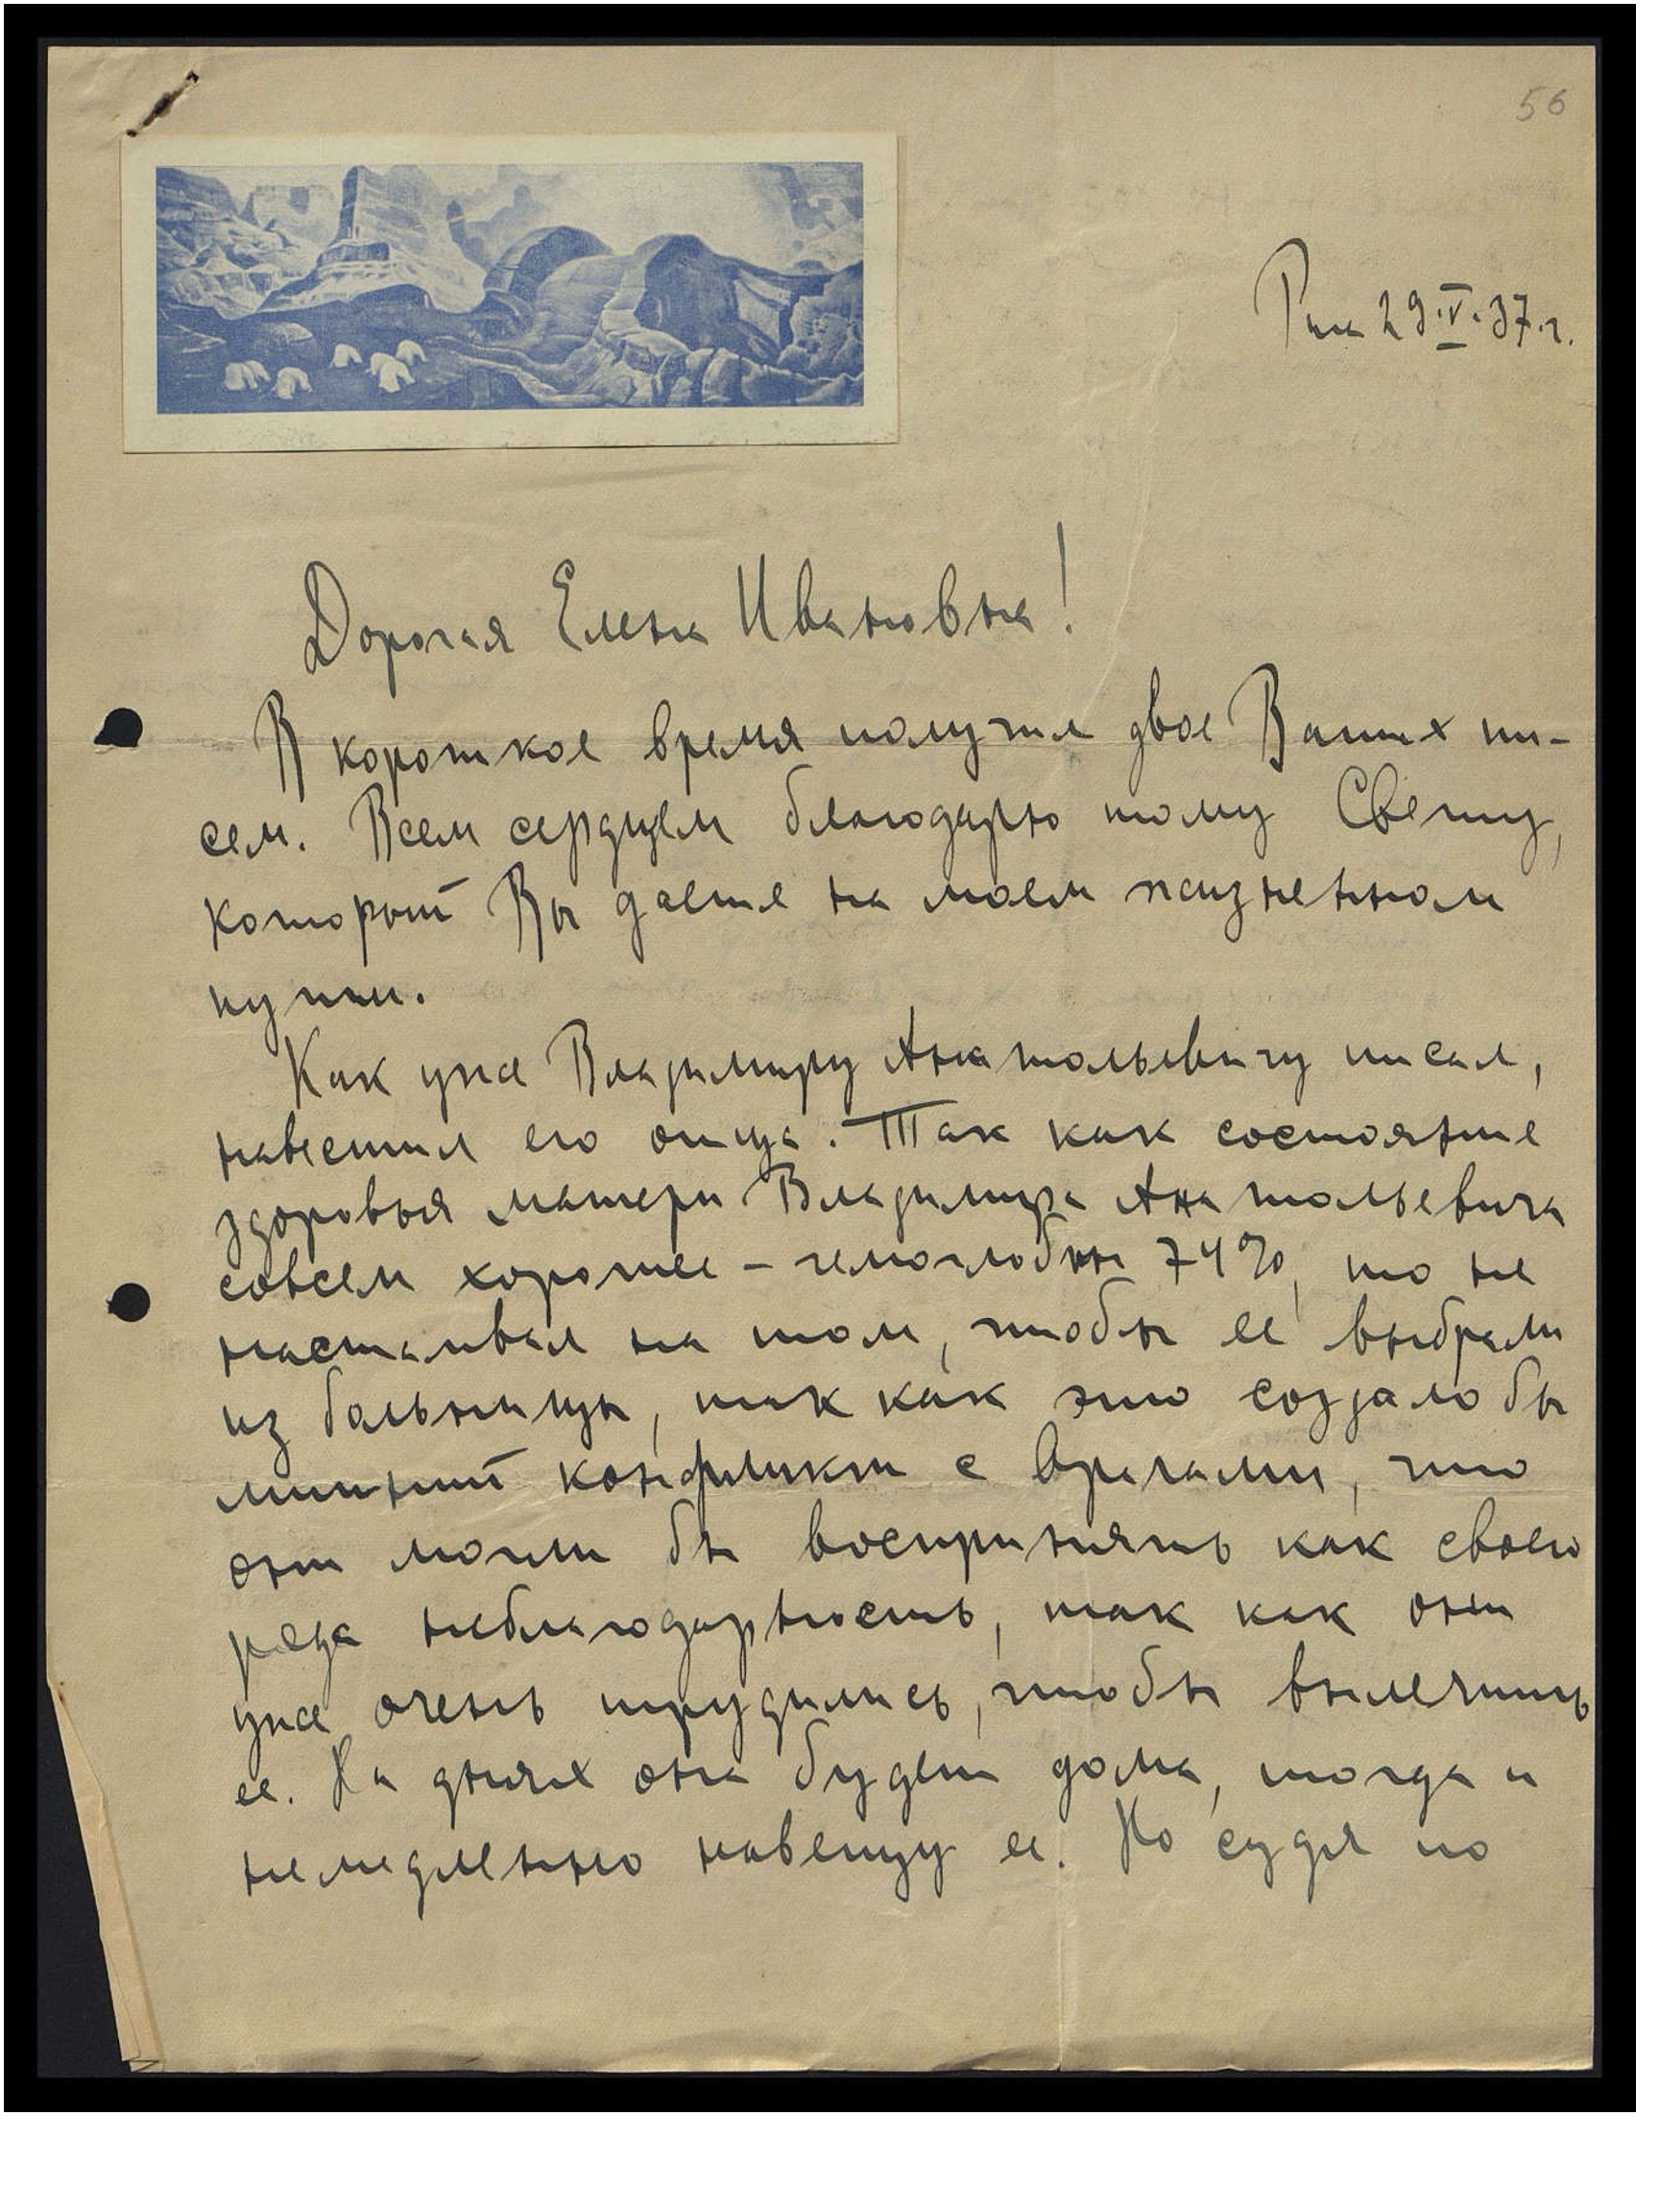 56
Рига 29.V.37.г.
Дорогая Елена Ивановна!
В короткое время получил двое Ваших пи-
сем. Всем сердцем благодарю тому Свету,
который Вы даете на моем жизненном
пути.
Как уже Владимиру Анатольевичу писал,
навестил его отца. Так как состояние
здоровья матери Владимира Анатольевича
совсем хорошее – гемоглобин 74%, то не
настаивал на том, чтобы ее выбрали
из больницы, так как это создало бы
лишний конфликт с врачами, что
они могли бы воспринять как своего
рода неблагодарность, так как они
уже очень трудились, чтобы вылечить
ее. На днях она будет дома, тогда и
немедленно навещу ее. Но судя по